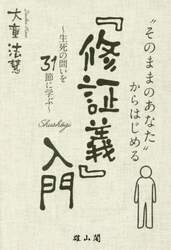 “そのままのあなた”
からはじめる
『修証義』入門
〜生死の問いを
31節に学ぶ〜
Shushōgi
大童法慧
雄山閣